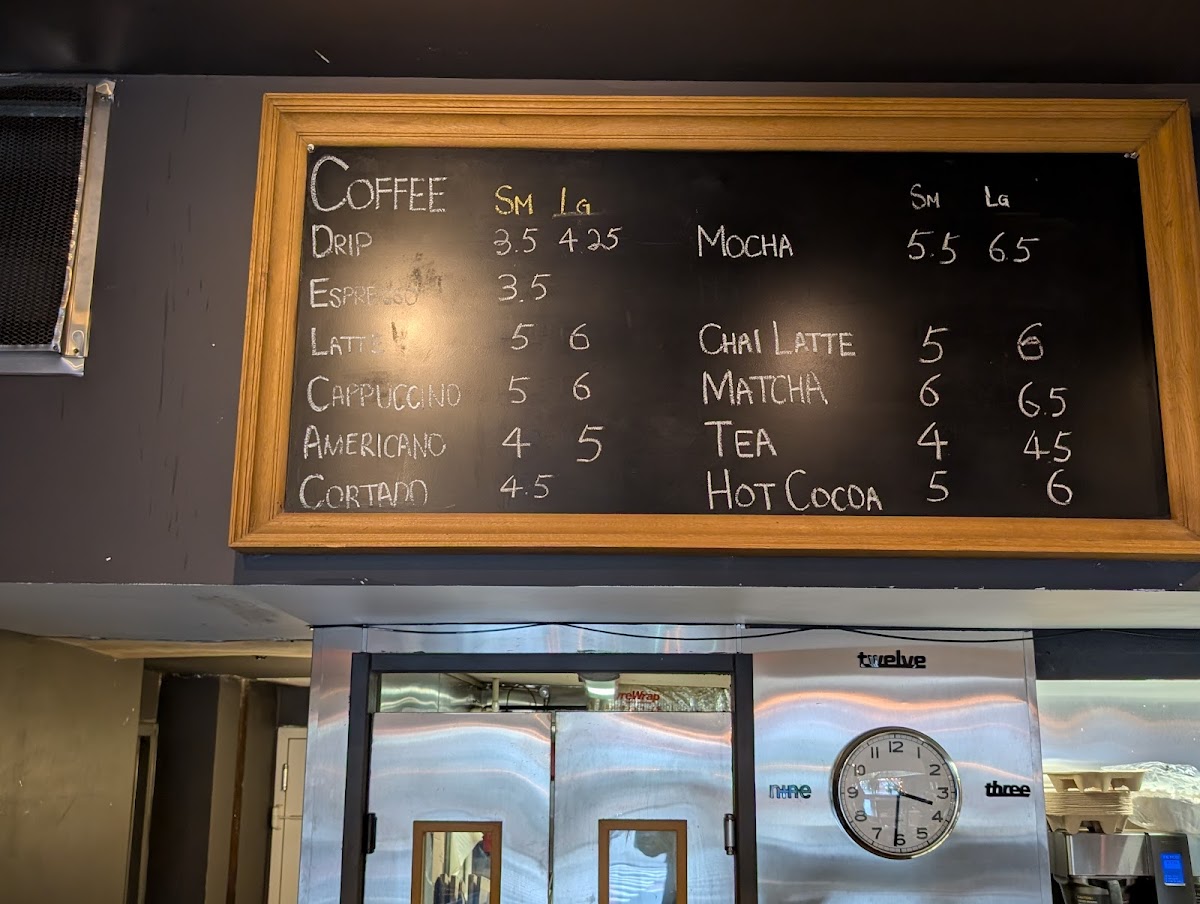 COFFEE SM LG
DRIP 3.5 4.25
ESPRESSO 3.5
LATTE 5 6
CAPPUCCINO 5 6
AMERICANO 4 5
CORTADO 4.5
SM LG
MOCHA 5.5 6.5
CHAI LATTE 5 6
MATCHA 6 6.5
TEA 4 4.5
HOT COCOA 5 6
reWrap
twelve
nine
three
12
1
2
3
4
5
6
7
8
9
10
11